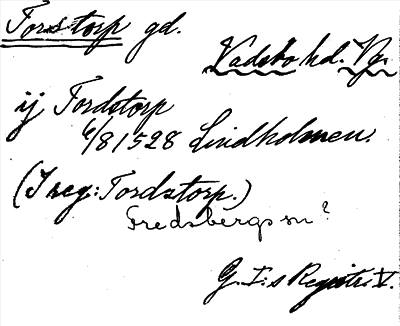 Forstorp gd.
Vadsbo hd. Vg.
ij Fordstorp
6/8 1528 Lindholmen.
(I reg: Tordstorp.)
Fredsbergs sn?
G. I:s Registr. V.